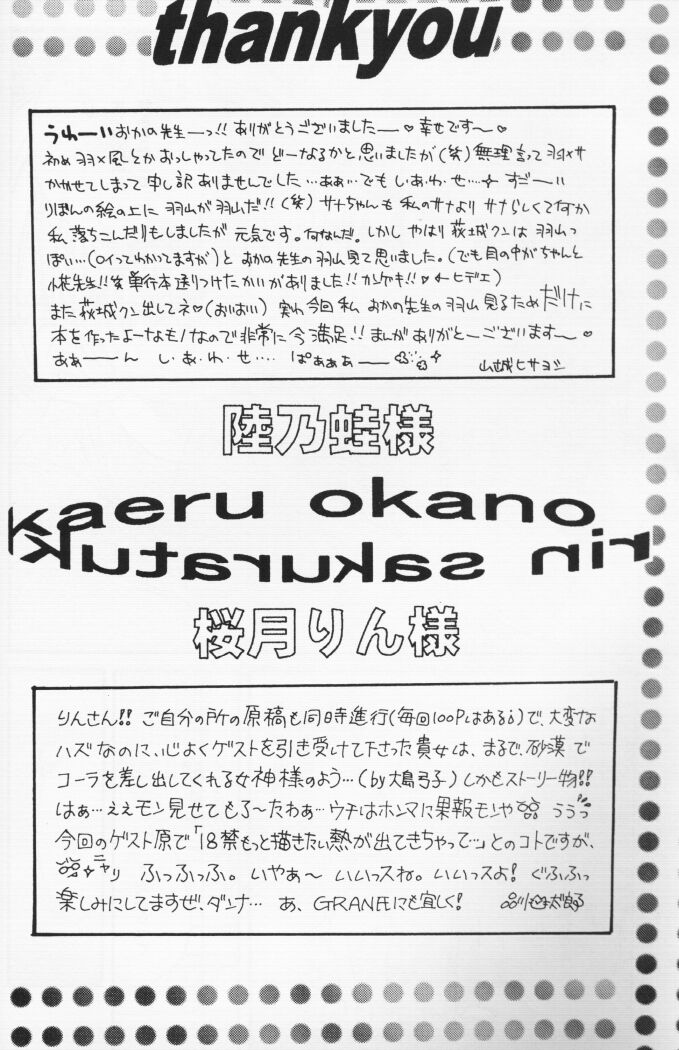 thankyou
うわーいおかの先生ーっ!! ありがとうございましたー♡ 幸せです〜♡
初め羽×風とかおっしゃってたのでどーなるかと思いましたが(笑)無理言って羽×サ
かかせてしまって申し訳ありませんでした…あぁ…でもしあ・わ・せ…✧ すごーい
りぼんの絵の上に羽山が羽山だ!!(笑)サナちゃんも私のサナよりサナらしくてなか
私落ちこんだりもしましたが元気です。何なんだ。しかしやはり荻城クンは羽山っ
ぽい…(ロイってわかってますが)とおかの先生の羽山見て思いました。(でも目の中がちゃんと
先生!! 単行本送りつけたかいがありました!! カンゲキ!!♡←ヒデェ)
また荻城クン出してネ♡(おいおい) 実わ今回私おかの先生の羽山見るためだけに
本を作ったよーなもんなので非常に今満足!! まんがありがとーございます〜♡
あぁーーん し・あ・わ・せ…. ぱぁぁぁー 山城ヒサヨシ
陸乃蛙様
kaeru okano
rin sakuratuk
桜月りん様
りんさん!! ご自分の所の原稿も同時進行(毎回100Pはある)で、大変な
ハズなのに、心よくゲストを引き受けて下さった貴女は、まるで、砂漠で
コーラを差し出してくれる女神様のよう…(by大島弓子)しかもストーリー物!!
はぁ…ええモン見せてもろ〜たわぁ…ウチはホンマに果報モンや うぅっ
今回のゲスト原で「18禁もっと描きたい熱が出てきちゃって…」とのコトですが、
ニヤリ ふっふっふ。いやぁ〜 いいっスね。いいっスよ! ぐふふっ
楽しみにしてますぜ、ダンナ… あ、GRANEにも宜しく!